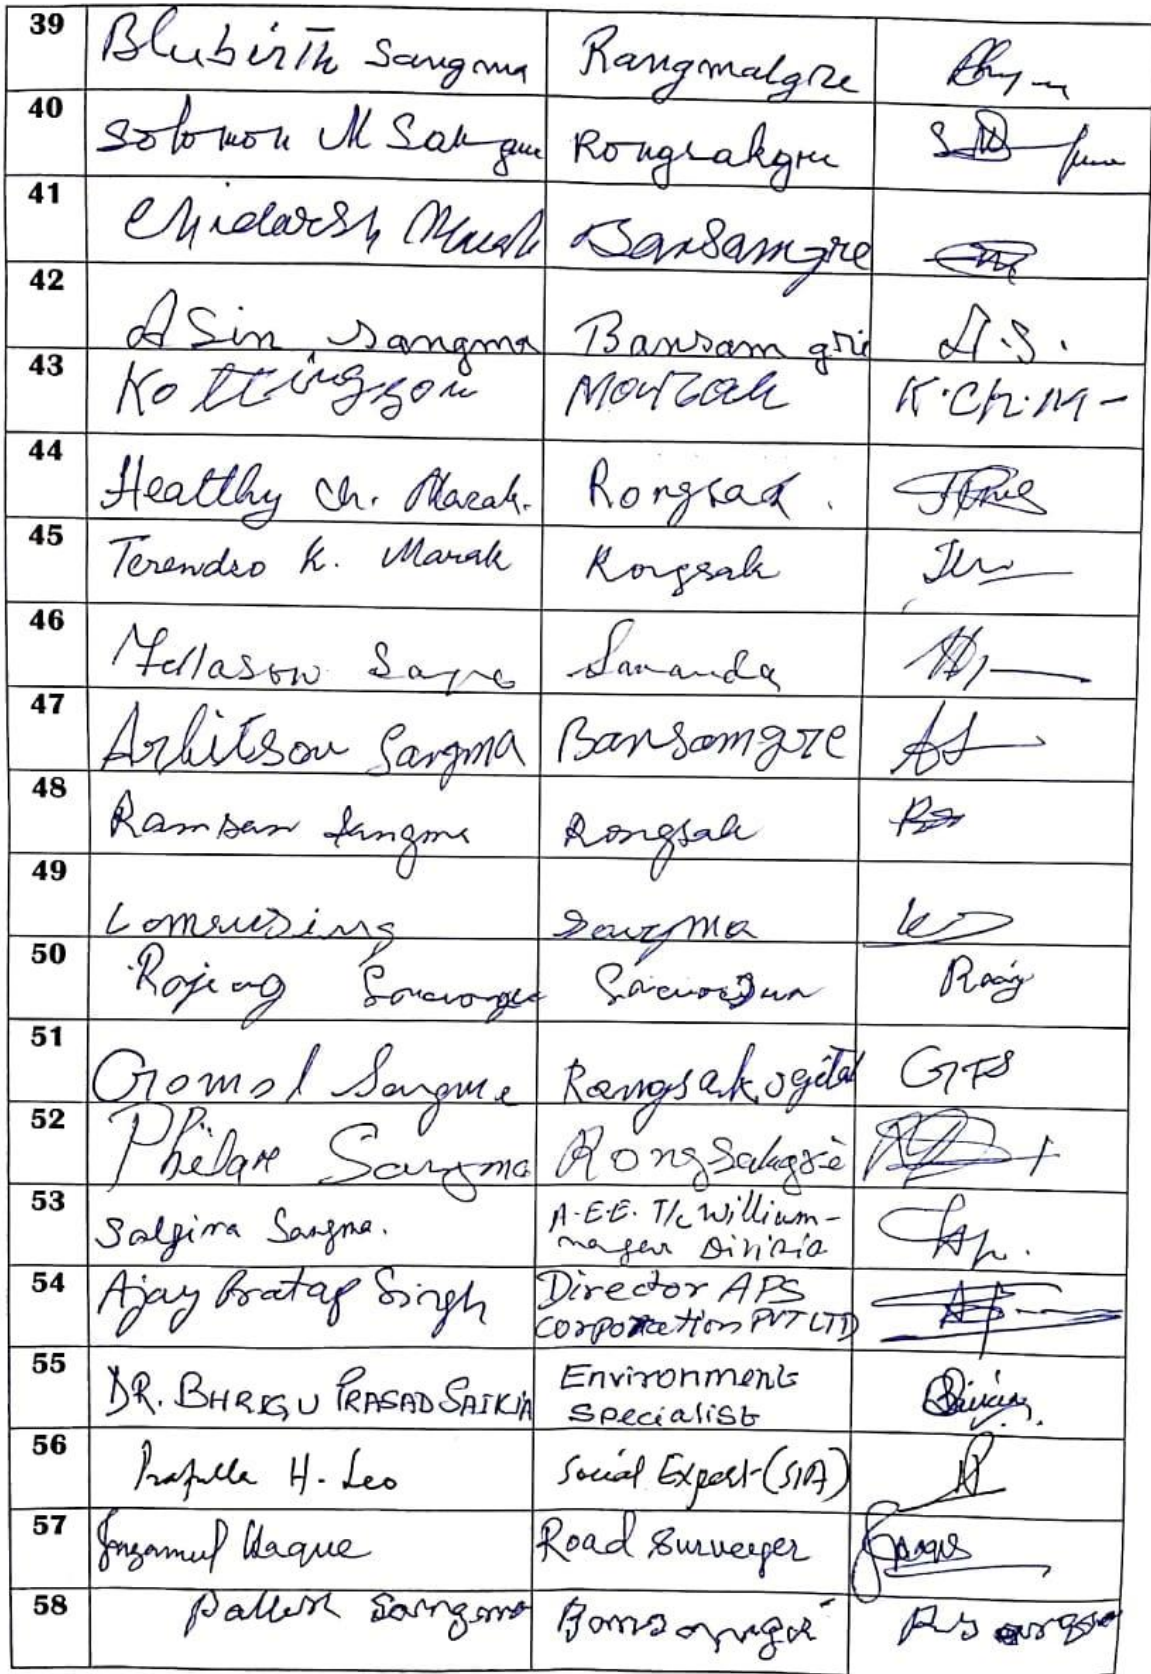 39 Blubirth Sangma Rangmalgre
40 Solomon M Sangma Rongsakgre
41 Chidarsh Marak Bansamgre
42 A Sin Sangma Bansamgri A.S.
43 Kottingson Marak K.Ch.M-
44 Healthy Ch. Marak. Rongsak.
45 Terendro K. Marak Rongsak
46 Samanda
47 Arbitson Sangma Bansamgre AS
48 Ramsan Sangma Rongsak
49 Sangma
50 Rajeng
51 Sangma Rongsak GFS
52 Philare Sangma Rongsakgre
53 Salgira Sangma. A.E.E. T/c William-
nagar Division
54 Ajay Pratap Singh Director APS
Corporation PVT LTD
55 DR. BHRIGU PRASAD SAIKIA Environment
Specialist
56 Prafulla H. Leo Social Expert (SIA)
57 Haque Road Surveyer
58 Sangma